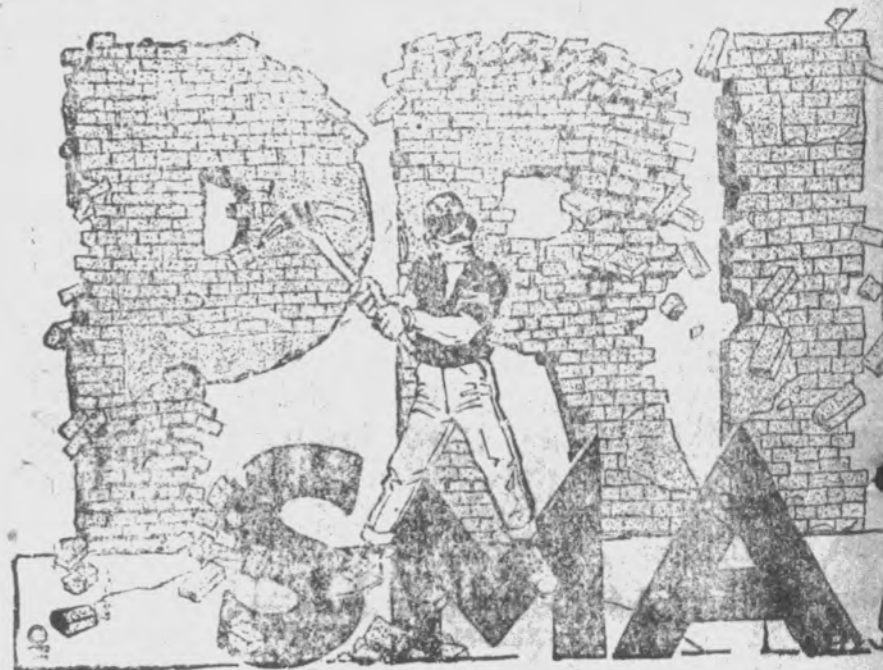 PRI
SMA